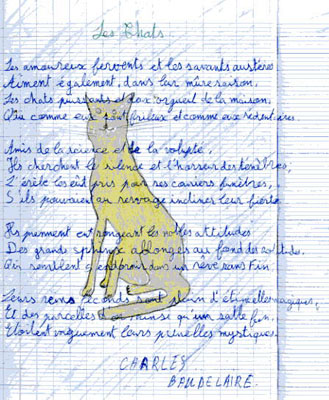 Les Chats
Les amoureux fervents et les savants austères
Aiment également, dans leur mûre saison,
Les chats puissants et doux, orgueil de la maison,
Qui comme eux sont frileux et comme eux sédentaires.
Amis de la science et de la volupté,
Ils cherchent le silence et l'horreur des ténèbres,
L'érèbe les eût pris pour ses coursiers funèbres,
S'ils pouvaient au servage incliner leur fierté.
Ils prennent en songeant les nobles attitudes
Des grands sphinx allongés au fond des solitudes,
Qui semblent s'endormir dans un rêve sans fin.
Leurs reins féconds sont plein d'étincelles magiques,
Et des parcelles d'or ainsi qu'un sable fin,
Etoilent vaguement leurs prunelles mystiques.
CHARLES
BAUDELAIRE.